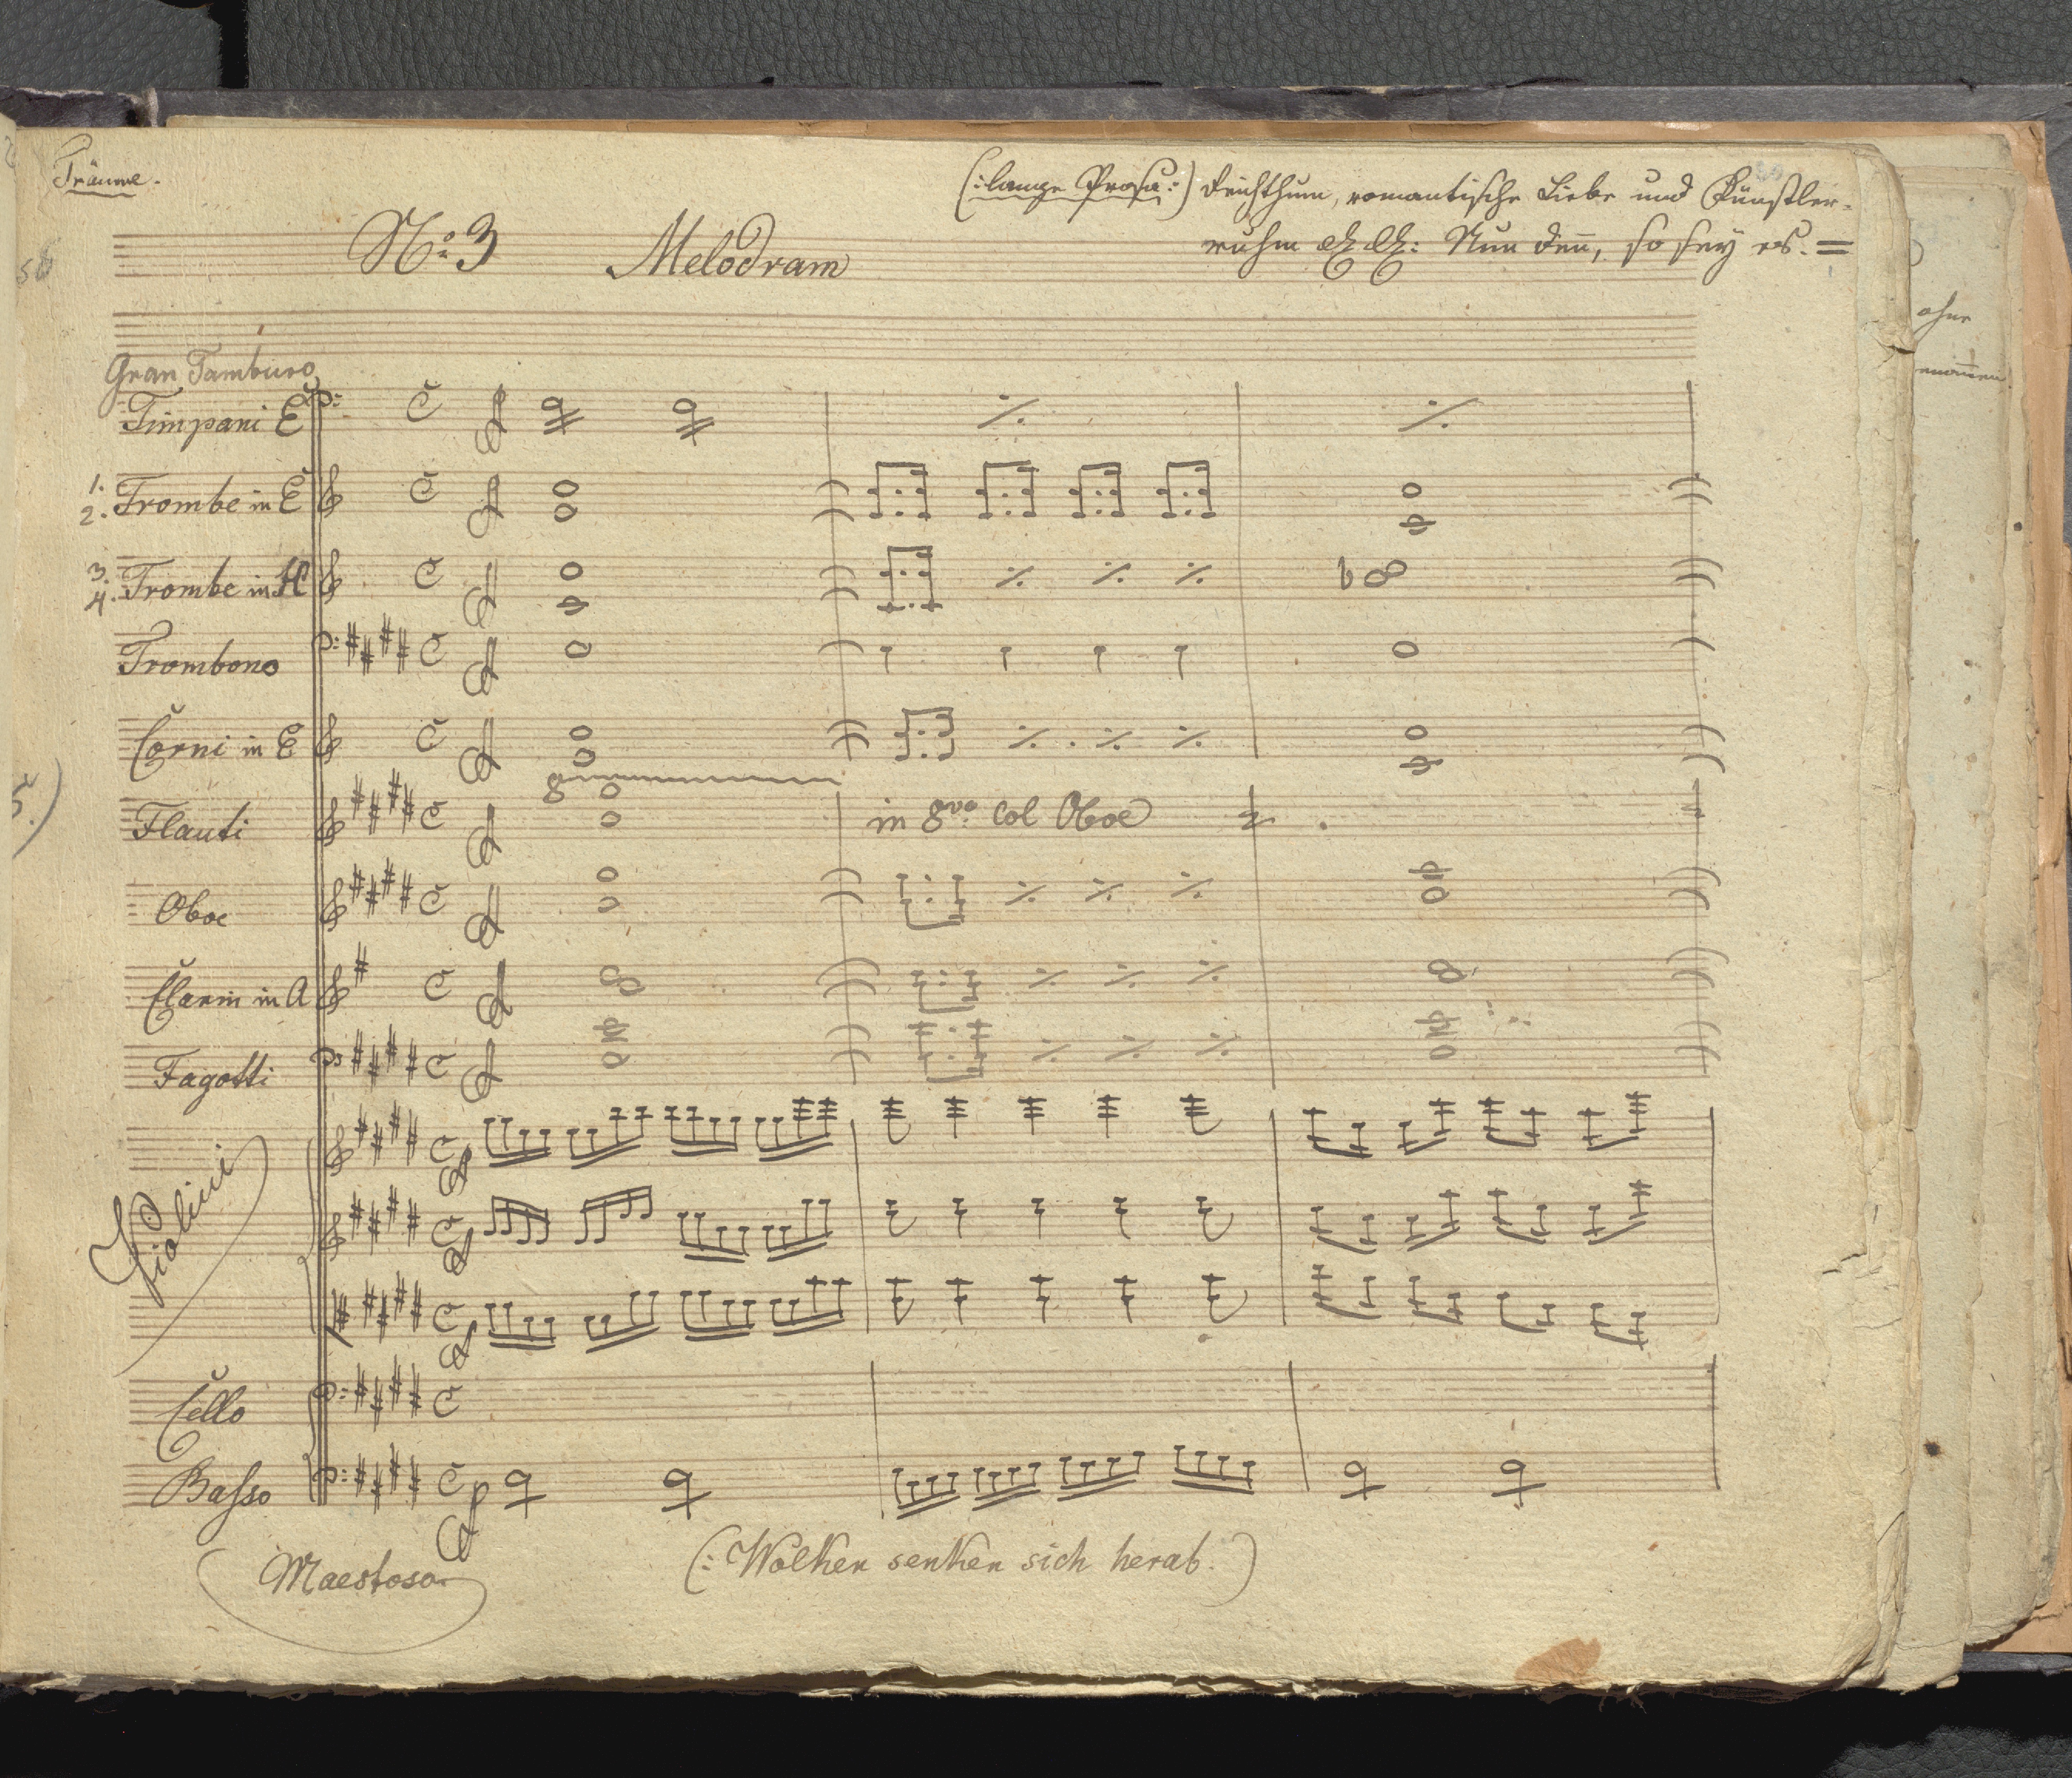 Träume.
(: lange Prosa :) Reichthum, romantische Liebe und Künstler-
ruhm &c &c: Nun denn, so sey es. =
No: 3 Melodram
Gran Tamburo
Timpani E
1.
2. Trombe in E
3.
4. Trombe in H
Trombono
Corni in E
8
Flauti
in 8va col Oboe
Oboe
Clarin in A
Fagotti
Violini
Cello
Basso
Maestoso
(: Wolken senken sich herab. )
ohne